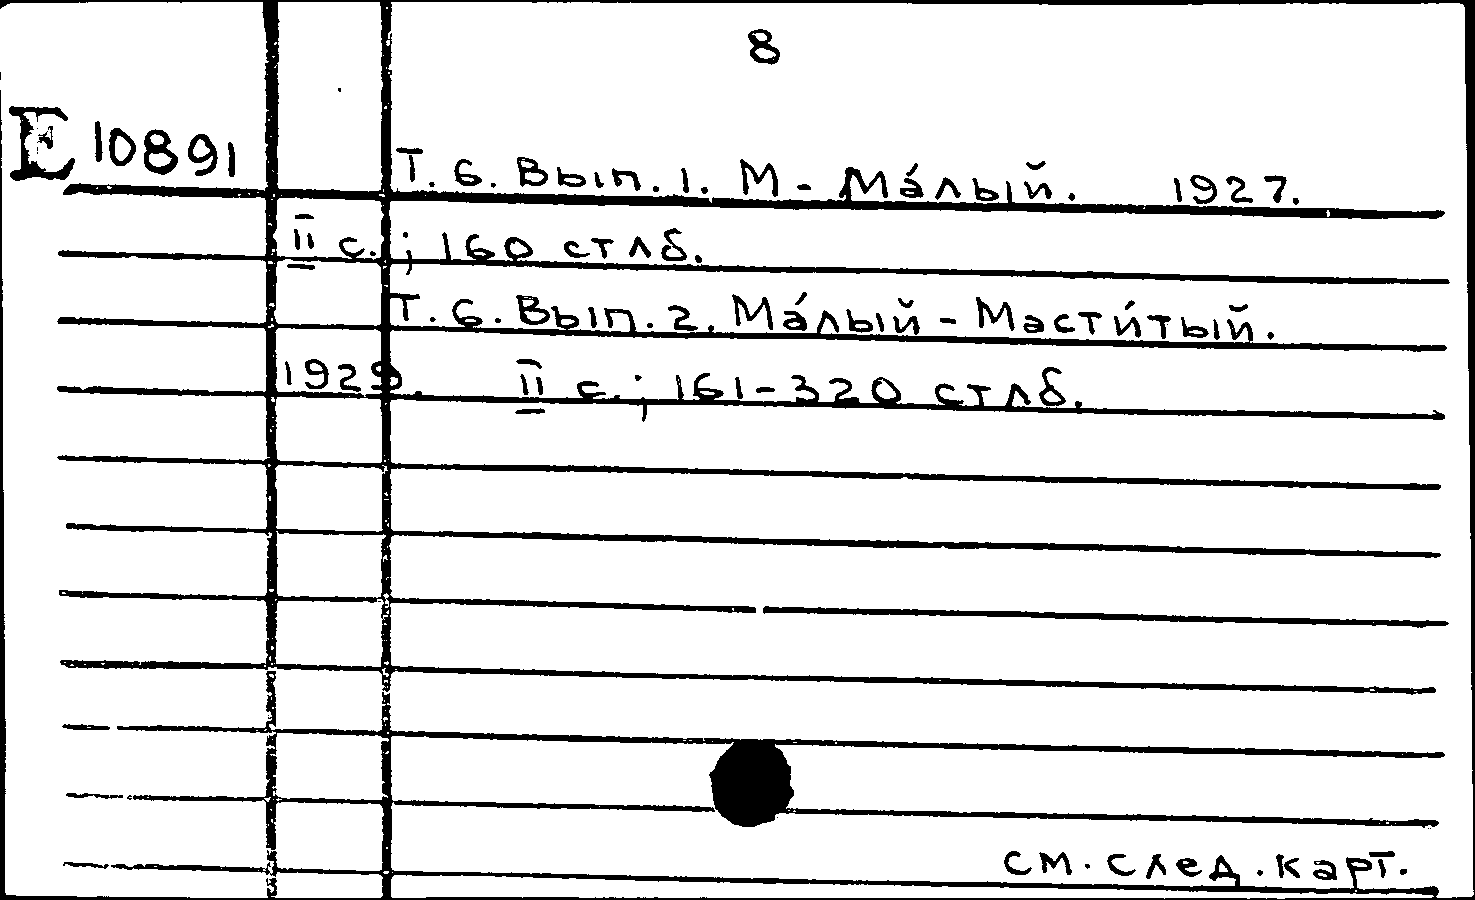 8
E 10891
Т. 6. Вып. 1. М - Ма́лый. 1927.
II с.; 160 стлб.
Т. 6. Вып. 2. Ма́лый - Масти́тый.
1929. II с.; 161-320 стлб.
см. след. карт.